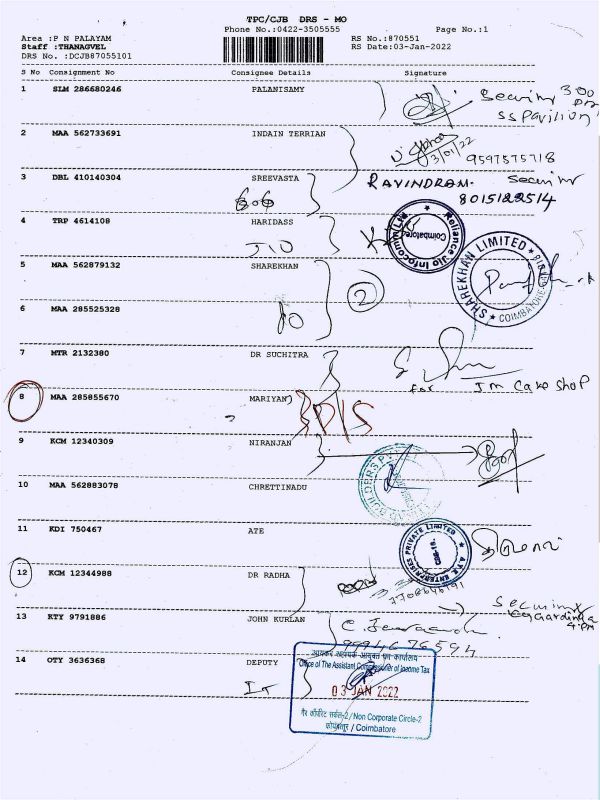 TPC/CJB DRS - MO
Phone No.:0422-3505555
Page No.:1
Area :P N PALAYAM
RS No.:870551
Staff :THANAGVEL
RS Date:03-Jan-2022
DRS No. :DCJB87055101
S No Consignment No Consignee Details Signature
1 SLM 286680246 PALANISAMY
300
SS Pavilion
2 MAA 562733691 INDAIN TERRIAN
3/01/22
9597575718
3 DBL 410140304 SREEVASTA
RAVINDRAM.
8015122514
4 TRP 4614108 HARIDASS
JIO
Reliance Jio Infocomm Ltd.
Coimbatore
5 MAA 562879132 SHAREKHAN
2
SHAREKHAN LIMITED
COIMBATORE
6 MAA 285525328
7 MTR 2132380 DR SUCHITRA
for Jm Cake Shop
8 MAA 285855670 MARIYAN
D/S
9 KCM 12340309 NIRANJAN
10 MAA 562883078 CHRETTINADU
BUILDERS
11 KDI 750467 ATE
ENTERPRISES PRIVATE LIMITED
12 KCM 12344988 DR RADHA
13 RTY 9791886 JOHN KURLAN
4 PM
9994676594
14 OTY 3636368 DEPUTY
IT
आयकर सहायक आयुक्त का कार्यालय
Office of The Assistant Commissioner of Income Tax
03 JAN 2022
गैर कॉर्पोरेट सर्कल-2 / Non Corporate Circle-2
कोयम्बत्तूर / Coimbatore